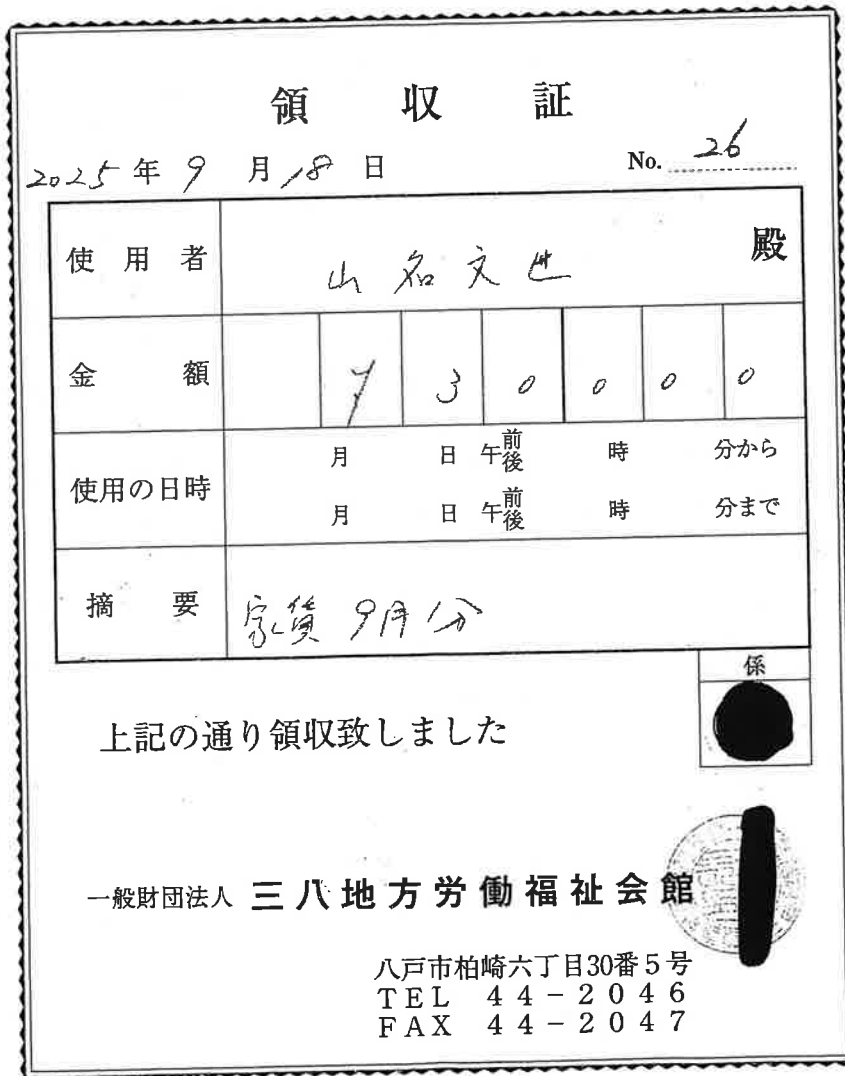 領収証
2025年9月18日 No. 26
使用者 山名文世 殿
金額 ¥30000
使用の日時 月 日 午前後 時 分から
月 日 午前後 時 分まで
摘要 家賃 9月分
係
上記の通り領収致しました
一般財団法人 三八地方労働福祉会館
八戸市柏崎六丁目30番5号
TEL 44-2046
FAX 44-2047